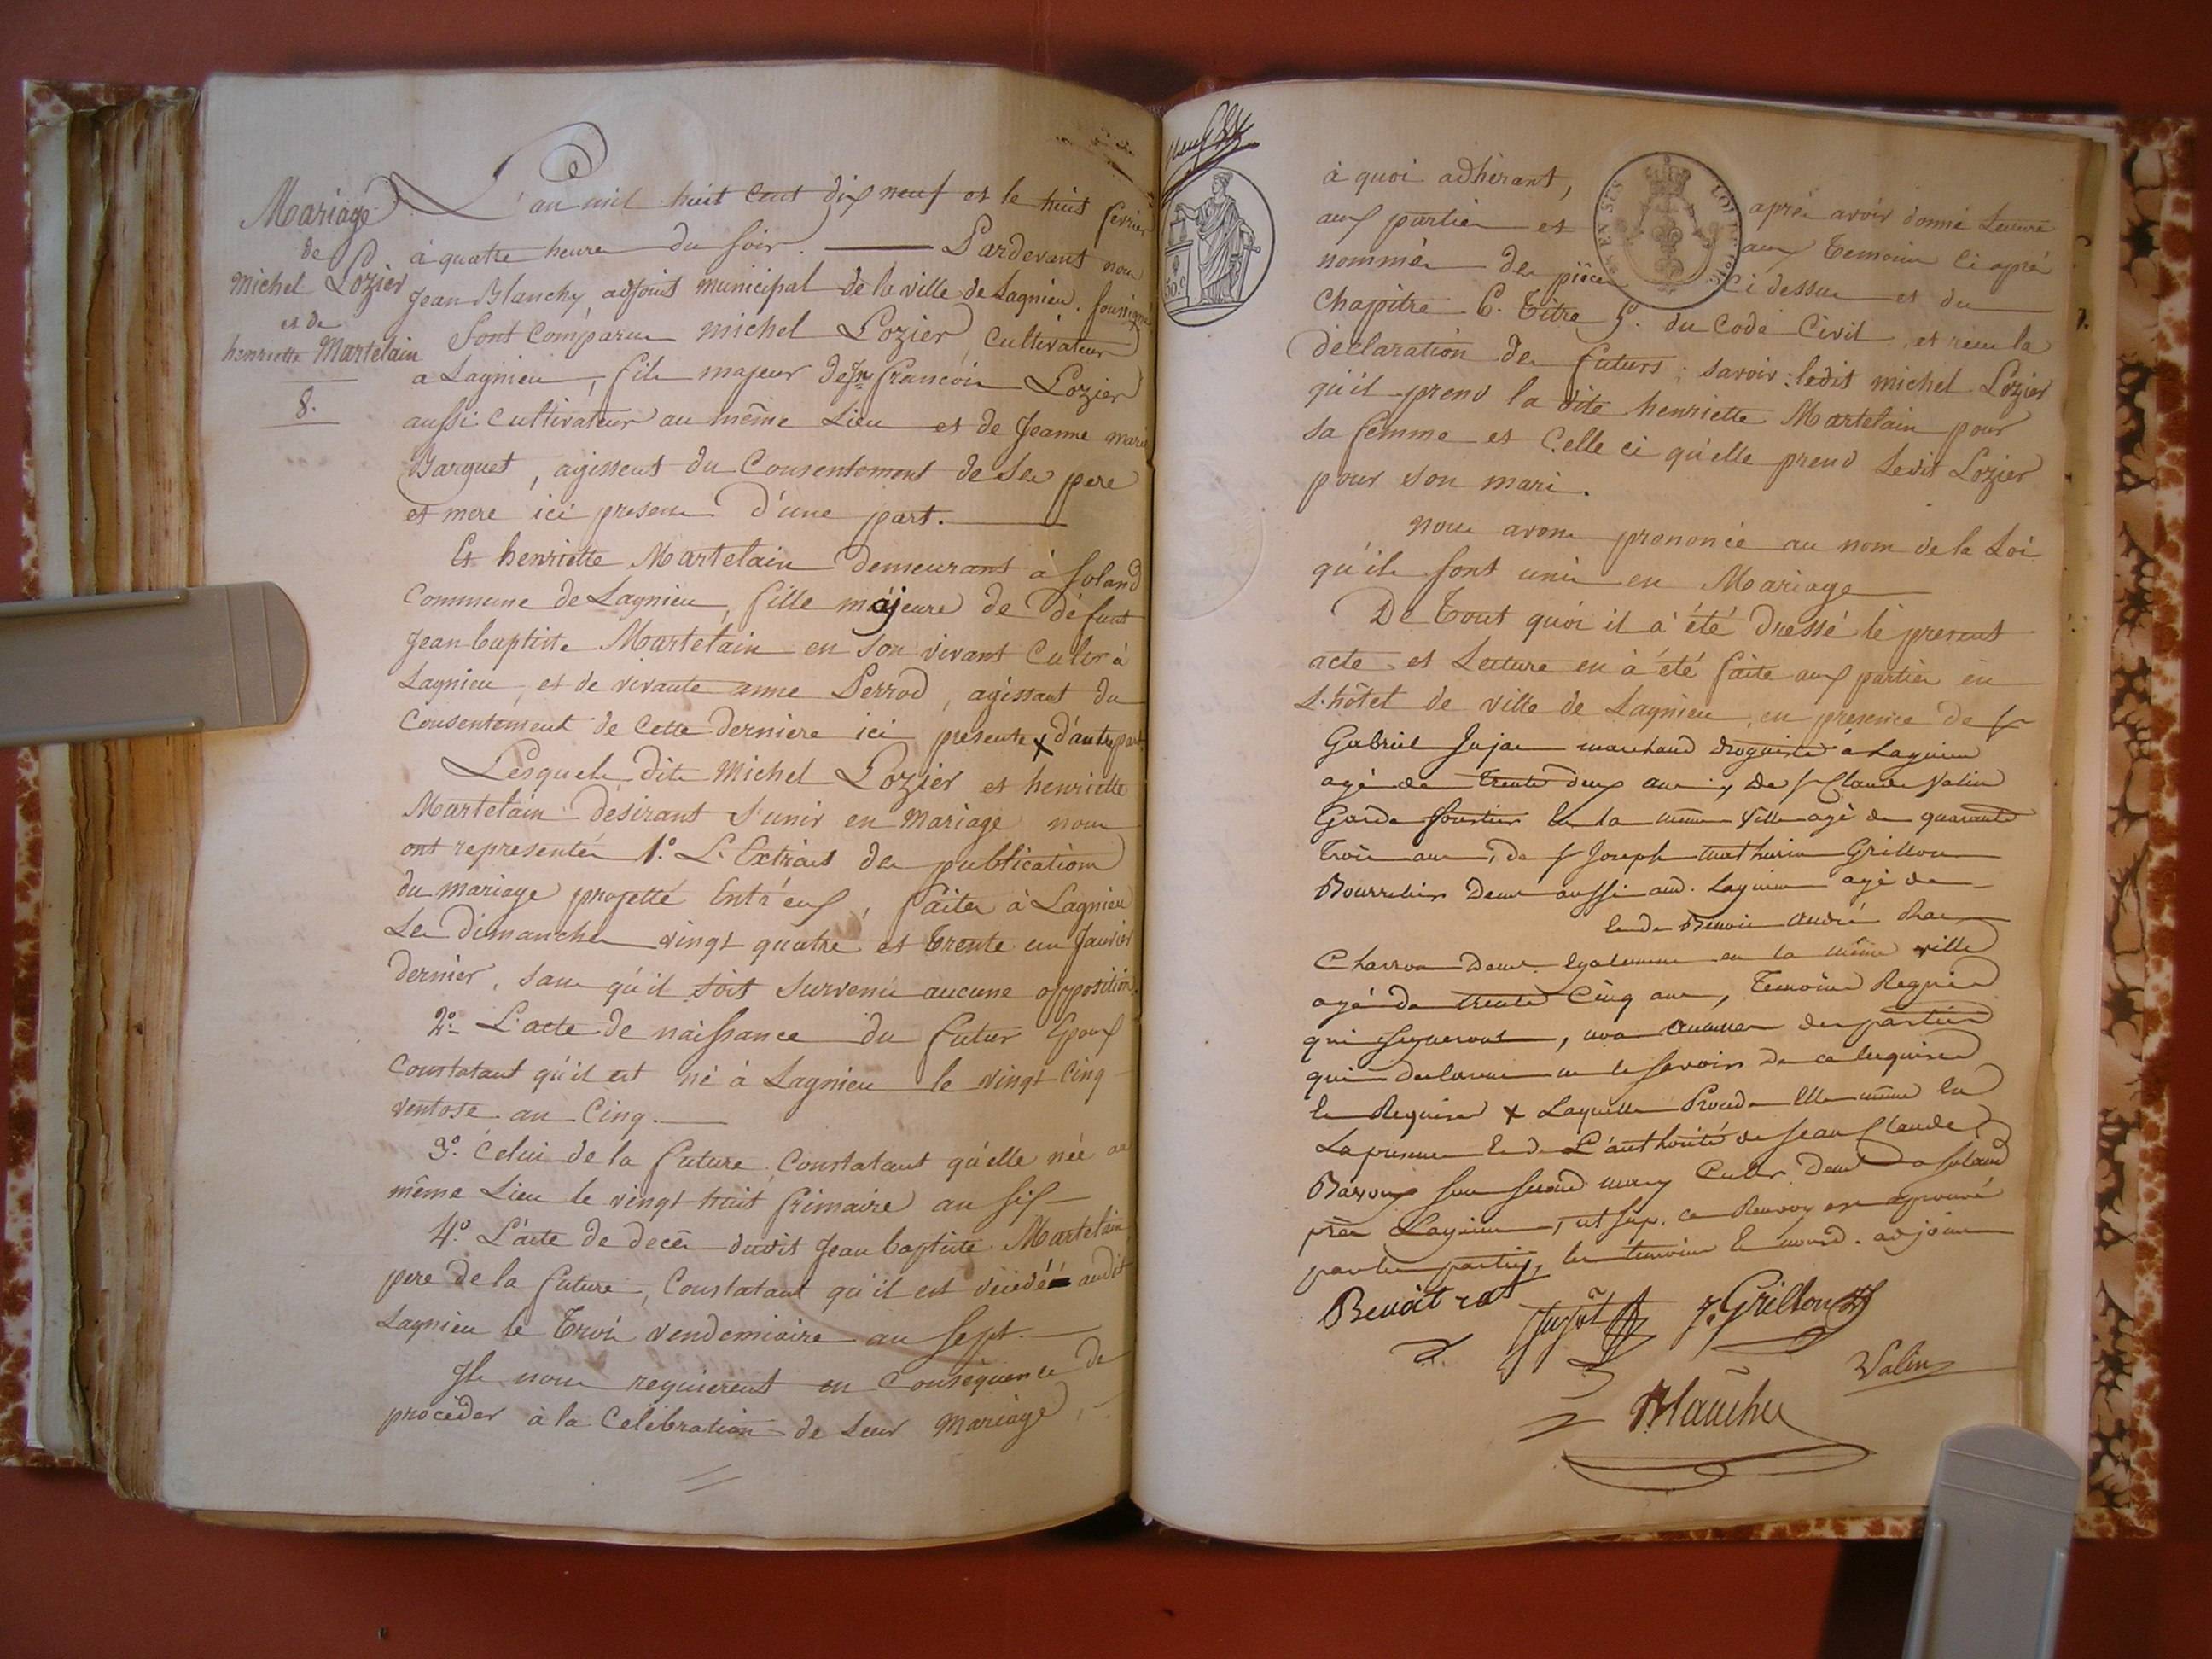 Mariage
de
Michel Lozier
et de
henriette Martelain
8.
L'an mil huit cent dix neuf et le huit fevrier
à quatre heures du soir. Pardevant nous
Jean Blanchy adjoint municipal de la ville de Lagnieu, soussigné
Sont comparus michel Lozier, cultivateur
a Lagnieu, fils majeur de Jn francois Lozier
aussi cultivateur au même Lieu et de Jeanne marie
Barquet, agissent du Consentement de ses pere
et mere ici presens d'une part.
Et henriette Martelain demeurant à foland
Commune de Lagnieu, fille majeure de défunt
Jean baptiste Martelain en son vivant Cultr à
Lagnieu, et de vivante anne Perrod, agissant du
Consentement de Cette derniere ici presente x d'autre part
Lesquels dits Michel Lozier et henriette
Martelain désirant s'unir en mariage nous
ont representés 1.° L'Extrait des publications
du mariage projetté Entr'eux, faites à Lagnieu
Les dimanches vingt quatre et trente un Janvier
dernier, sans qu'il soit survenu aucune opposition.
2.° L'acte de naissance du futur Epoux
Constatant qu'il est né à Lagnieu le vingt Cinq
ventose an Cinq.
3.° Celui de la future, Constatant qu'elle née au
même Lieu le vingt huit frimaire an six
4.° L'acte de decès dudit Jean baptiste Martelain
pere de la future, Constatant qu'il est décédé audit
Lagnieu le trois vendemiaire an sept.
Ils nous requierent en Conséquence de
procéder à la Célébration de leur mariage,
neuf
50.c
à quoi adhérant, après avoir donné Lecture
aux parties et aux temoins ci après
nommés des pièces ci dessus et du
Chapitre 6. titre 5.° du Code Civil, et recu la
déclaration des futurs; savoir: ledit michel Lozier
qu'il prend la dite henriette Martelain pour
sa femme et Celle ci qu'elle prend Ledit Lozier
pour son mari.
nous avons prononcé au nom de la Loi
qu'ils sont unis en Mariage
De tout quoi il a été dressé le present
acte et Lecture en à été faite aux parties en
L'hôtel de ville de Lagnieu, en presence de Sr
Gabriel Jujat marchand droguiste à Lagnieu
agé de trente deux ans, de Sr Claude Valin
Garde forestier en la même Ville agé de quarante
trois ans, de Sr Joseph mathurin Grillon
Bourrelier demt aussi aud. Lagnieu agé de
et de Benoit andré
Charron demt également en la même ville
agé de trente Cinq ans, temoins Requis
qui signeront, non aucunes des parties
qui declarent ne le savoir de ce Enquises
et Requises x Laquelle Procede Elle même en
La presence et de L'authorité de Jean Claude
son second mary Cultr demt a foland
près Lagnieu, ce Renvoy est aprouvé
par les parties, les temoins et nousd. adjoint
Benoit rat
Jujat
J. Grillon
Valin
Blanchy